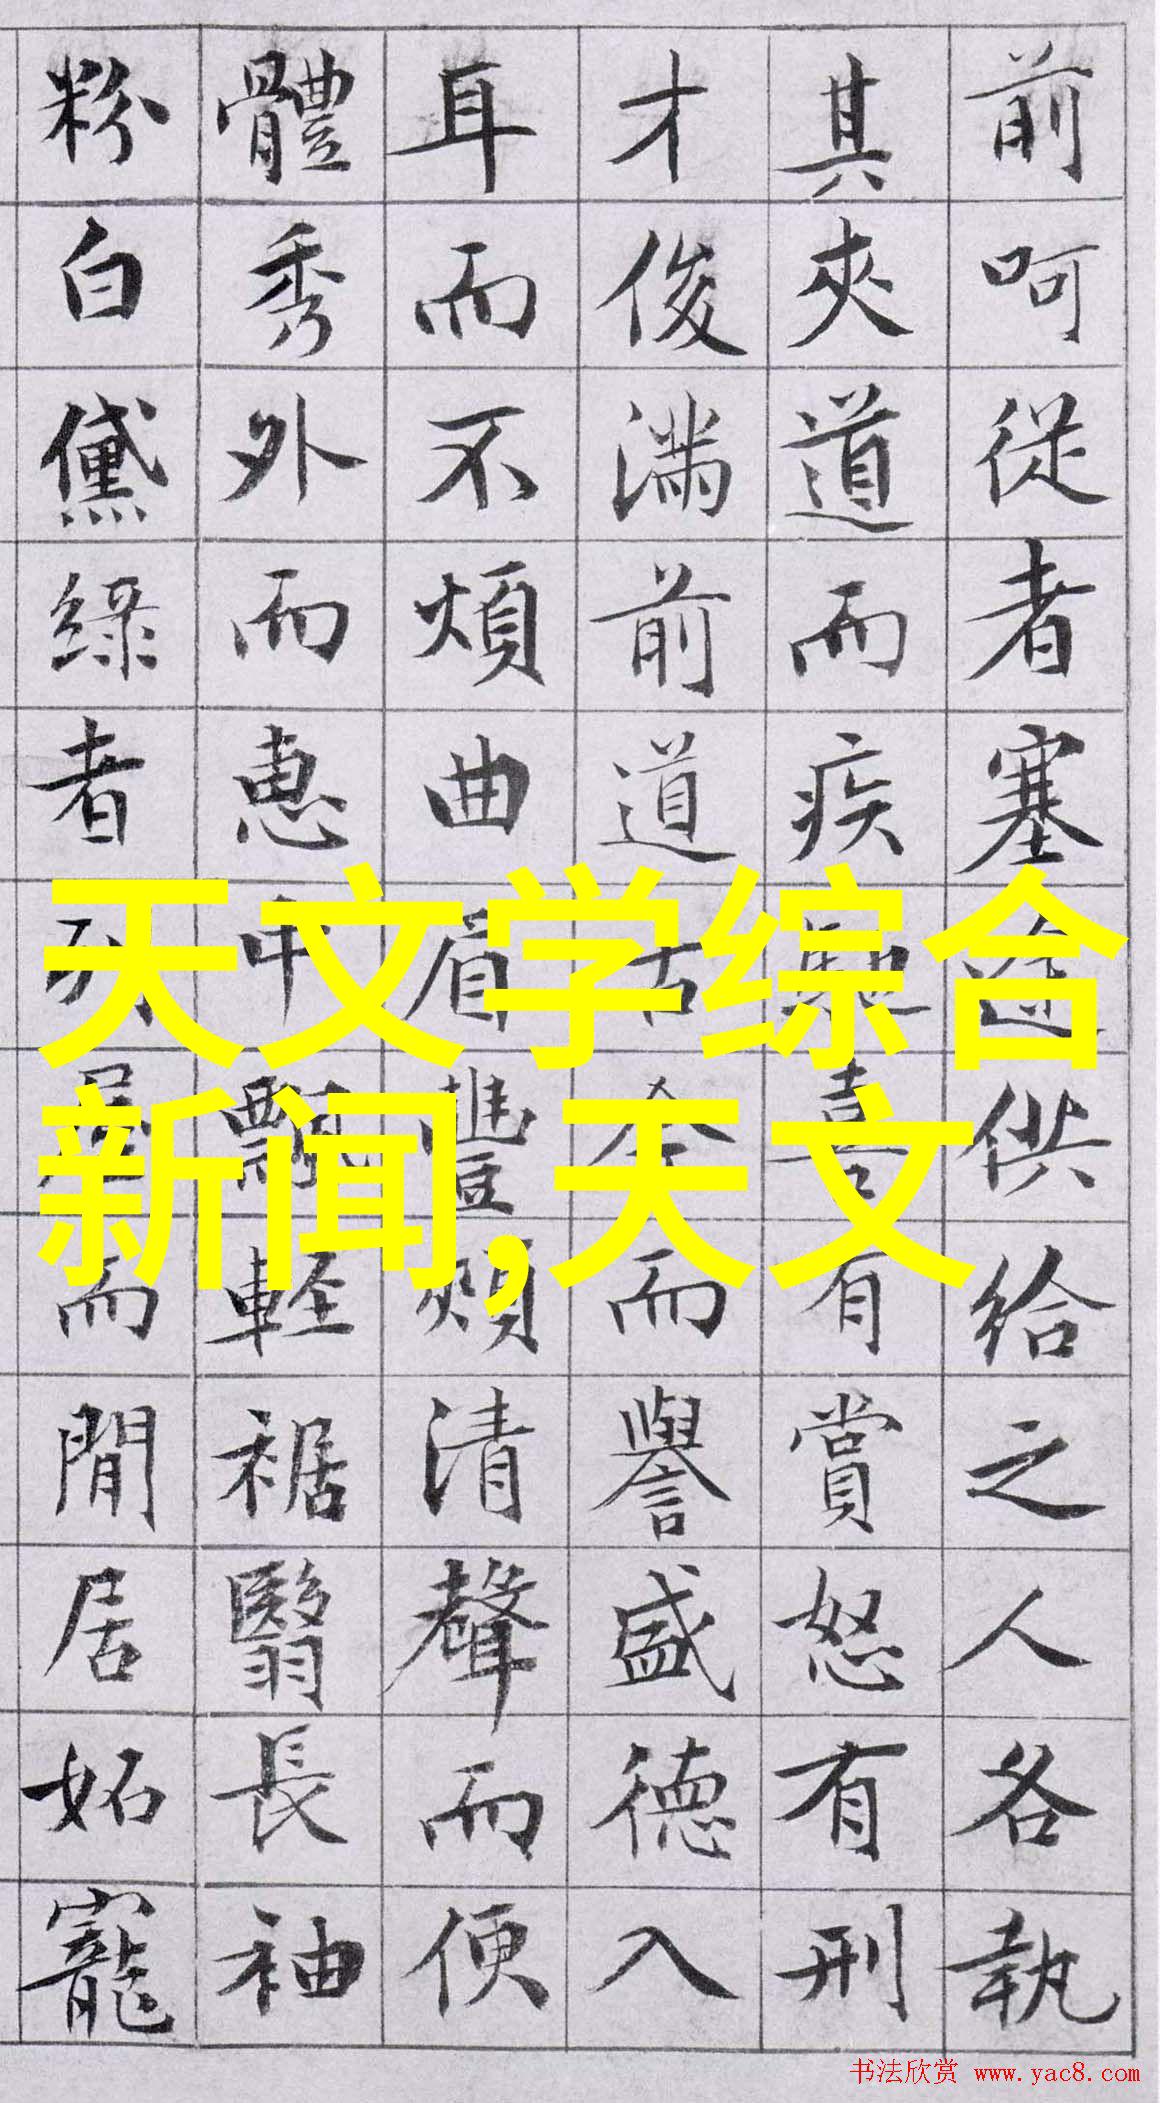 前呵從者塞途供給之人各執
其夾道而疾馳喜有賞怒有刑
才俊滿前道古今而譽盛德入
耳而不煩曲眉豐頰清聲而便
體秀外而惠中飄輕裾翳長袖
粉白黛綠者列屋而閒居妬寵
天文学综合
新闻,天文
书法欣赏 www.yac8.com